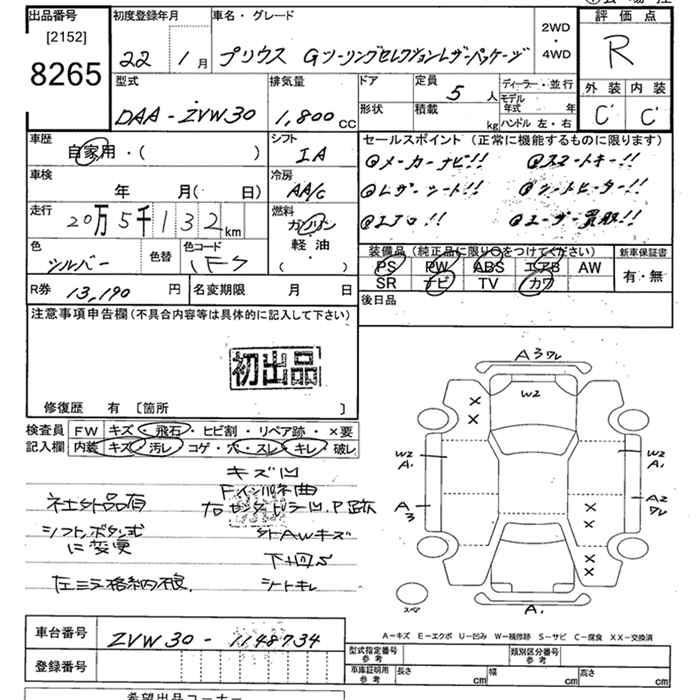 出品番号
[2152]
8265
初度登録年月
22年 1月
車名・グレード
プリウス Gツーリングセレクションレザーパッケージ
2WD
・
4WD
評価点
R
外装 内装
C' C'
型式
DAA-ZVW30
排気量
1,800cc
ドア
形状
定員
5人
積載
kg
ディーラー・並行
モデル年式 年
ハンドル 左・右
車歴
自家用・( )
シフト
IA
車検
年 月( 日)
冷房
AA/C
走行
20万5千132km
燃料
ガソリン
軽油
( )
色
シルバー
色替
色コード
1F7
R券 13,190円
名変期限 月 日
セールスポイント (正常に機能するものに限ります)
◎メーカーナビ!! ◎スマートキー!!
◎レザーシート!! ◎シートヒーター!!
◎ETC!! ◎ユーザー買取!!
装備品(純正品に限り○をつけてください)
PS PW ABS エアB AW
SR ナビ TV カワ
新車保証書
有・無
後日品
注意事項申告欄(不具合内容等は具体的に記入して下さい)
初出品
修復歴 有 [箇所 ]
検査員記入欄
FW キズ・飛石・ヒビ割・リペア跡・×要
内装 キズ・汚レ・コゲ・穴・スレ・キレ・破レ
キズ凹
社外品有
シフトボタン式に変更
左ミラー格納不良
外AWキズ
下回りS
シートキレ
A3ワレ
W2
W2
A.
A3
W2
A.
A2
ワレ
A.
スペア
A-キズ E-エクボ U-凹み W-補修跡 S-サビ C-腐食 XX-交換済
車台番号
ZVW30-1148734
登録番号
型式指定番号
参考
類別区分番号
参考
車庫証明用
参考
長さ cm 幅 cm 高さ cm
希望出品コーナー